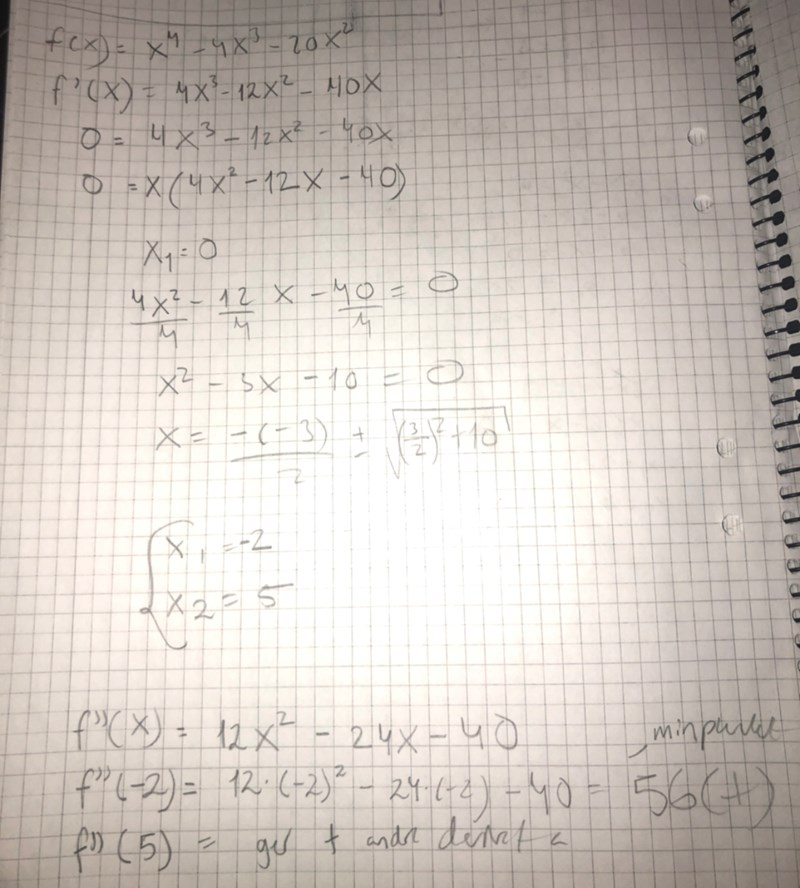 f(x) = x⁴ - 4x³ - 20x²
f'(x) = 4x³ - 12x² - 40x
0 = 4x³ - 12x² - 40x
0 = x(4x² - 12x - 40)
x₁ = 0
4x²/4 - 12/4 x - 40/4 = 0
x² - 3x - 10 = 0
x = -(-3)/2 ± √((3/2)² + 10)
{ x₁ = -2
x₂ = 5
f''(x) = 12x² - 24x - 40
f''(-2) = 12·(-2)² - 24·(-2) - 40 = 56(+) minpunkt
f''(5) = ger + andra